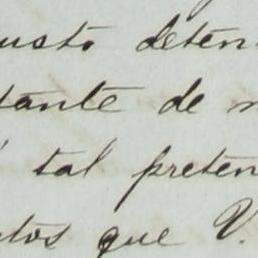 usto deten
tante de n
tal preten
tos que V.